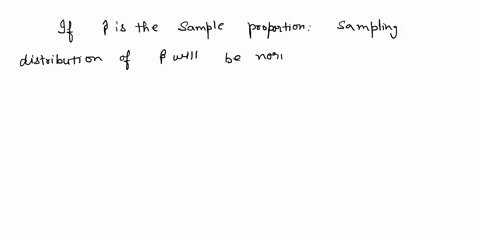 If p̂ is the sample proportion: sampling
distribution of p̂ will be nor